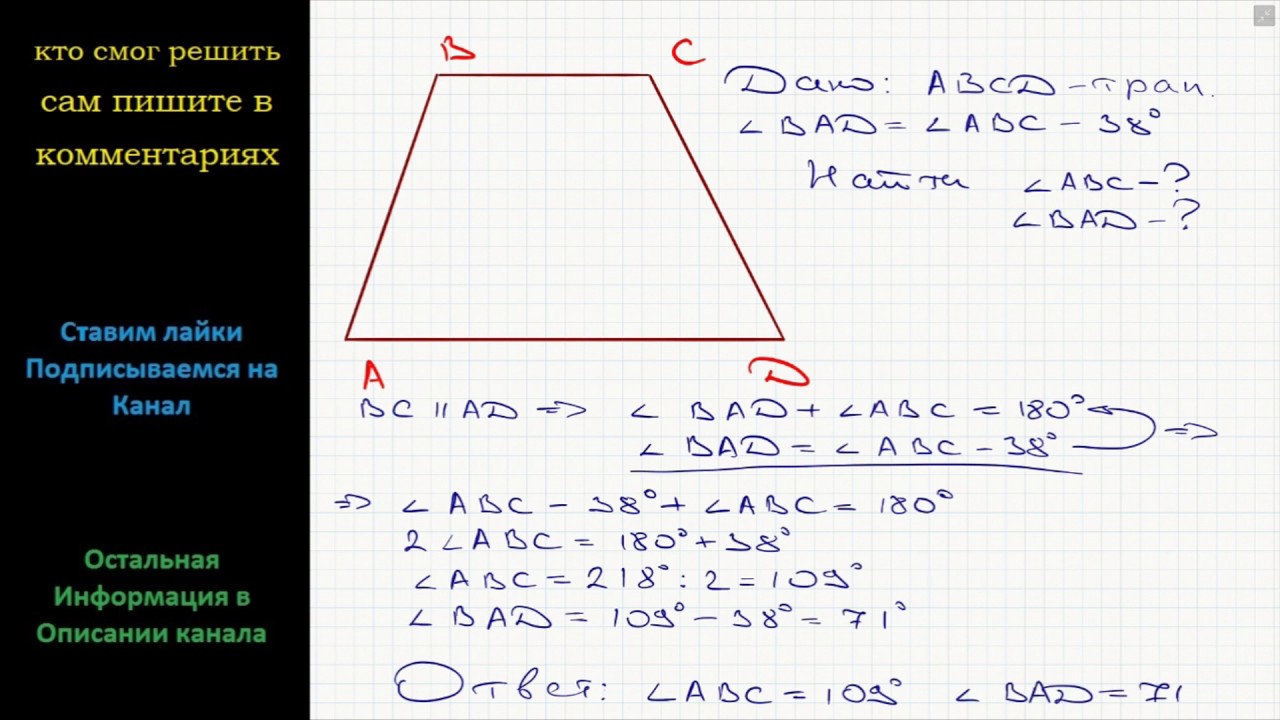 кто смог решить
сам пишите в
комментариях
Ставим лайки
Подписываемся на
Канал
Остальная
Информация в
Описании канала
B
C
A
D
Дано: ABCD – трап.
∠BAD = ∠ABC – 38°
Найти ∠ABC – ?
∠BAD – ?
BC || AD => ∠BAD + ∠ABC = 180°
∠BAD = ∠ABC – 38° =>
=> ∠ABC – 38° + ∠ABC = 180°
2∠ABC = 180° + 38°
∠ABC = 218° : 2 = 109°
∠BAD = 109° – 38° = 71°
Ответ: ∠ABC = 109° ∠BAD = 71